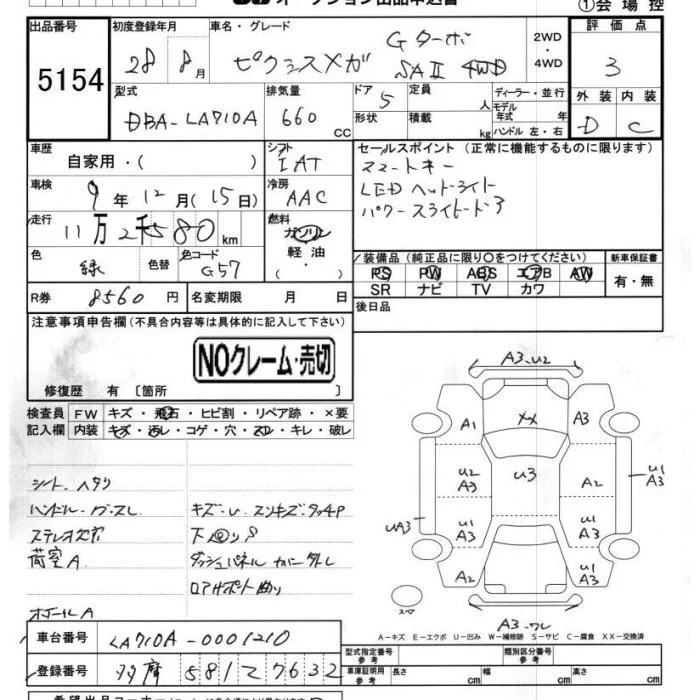 ①会場控
出品番号
5154
初度登録年月
28 8月
車名・グレード
ピクシスメガ
Gターボ
SAⅡ 4WD
2WD
・
4WD
評価点
3
外装 内装
D C
型式
DBA-LA710A
排気量
660
CC
ドア
5
形状
定員
人
積載
kg
ディーラー・並行
モデル
年式 年
ハンドル 左・右
車歴
自家用・( )
シフト
IAT
セールスポイント (正常に機能するものに限ります)
スマートキー
LEDヘッドライト
パワースライドドア
車検
9年12月(15日)
冷房
AAC
走行
11万2千580km
燃料
ガソリン
軽油
・( )
色
緑
色替
色コード
G57
装備品(純正品に限り○をつけてください)
PS PW ABS エアB AW
SR ナビ TV カワ
新車保証書
有・無
R券
8560円
名変期限 月 日
後日品
注意事項申告欄(不具合内容等は具体的に記入して下さい)
NOクレーム・売切
修復歴 有 〔箇所 〕
検査員
記入欄
FW キズ・飛石・ヒビ割・リペア跡・×要
内装 キズ・汚レ・コゲ・穴・スレ・キレ・破レ
シートヘタリ
キズ・U
ステレオ欠品
荷室A
ダッシュパネル カバー
ロアサポート曲り
A3 U2
A1
XX
A3
U2
A3
U3
A2
U1
A3
UA3
U1
A3
U1
A3
A2
U1
A3
スペア
A3
A-キズ E-エクボ U-凹み W-補修跡 S-サビ C-腐食 XX-交換済
車台番号
LA710A-0001210
登録番号
多摩 581 て 7632
型式指定番号
参考
類別区分番号
参考
車庫証明用
参考
長さ cm
幅 cm
高さ cm